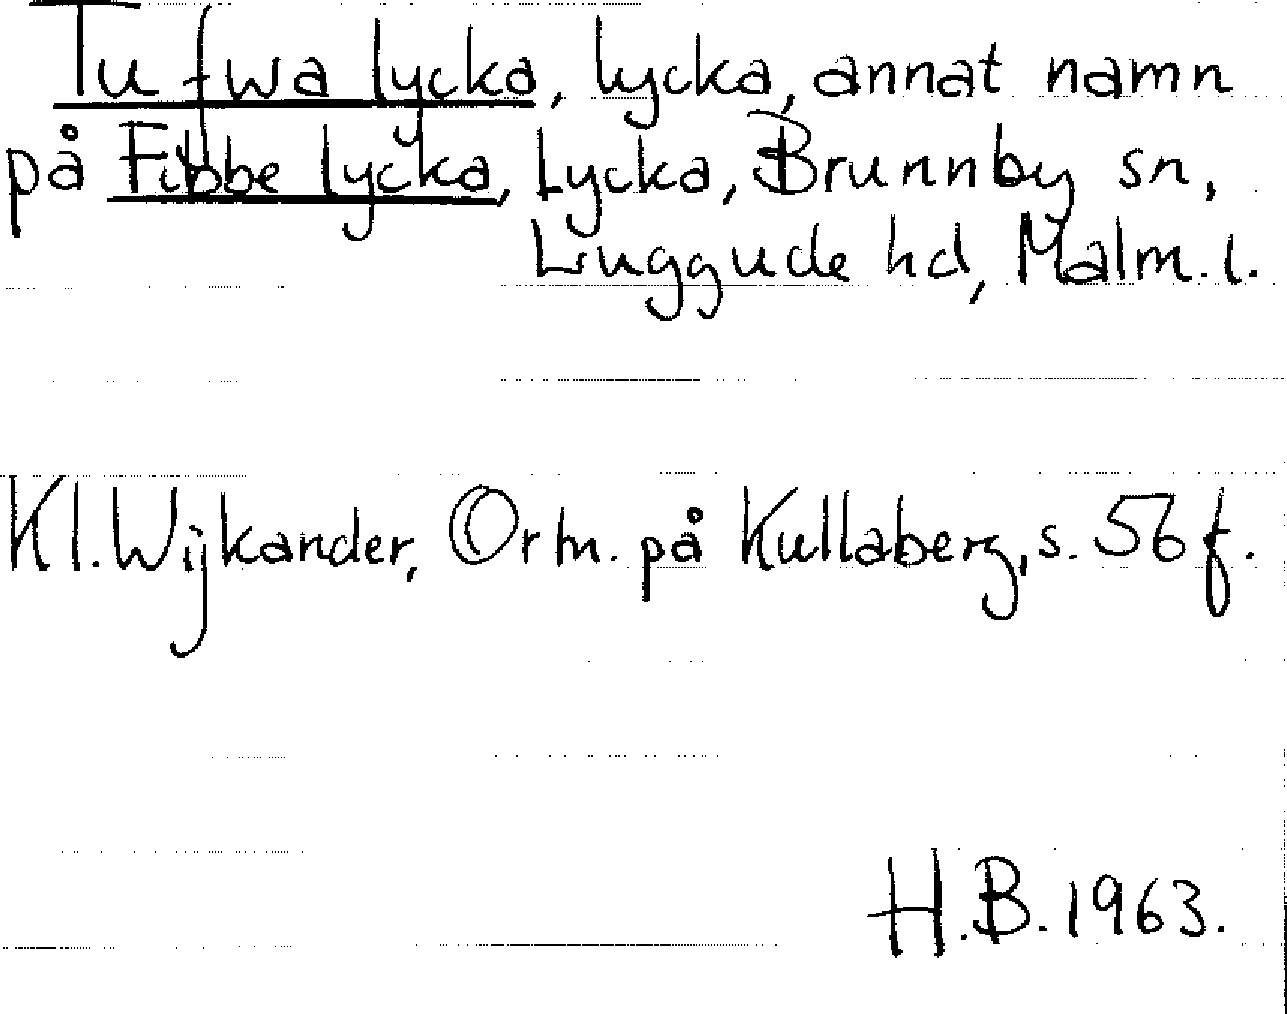 Tufwa lycka, lycka, annat namn
på Fibbe lycka, Lycka, Brunnby sn,
Luggude hd, Malm. l.
Kl. Wijkander, Ortn. på Kullaberg, s. 56 f.
H.B. 1963.